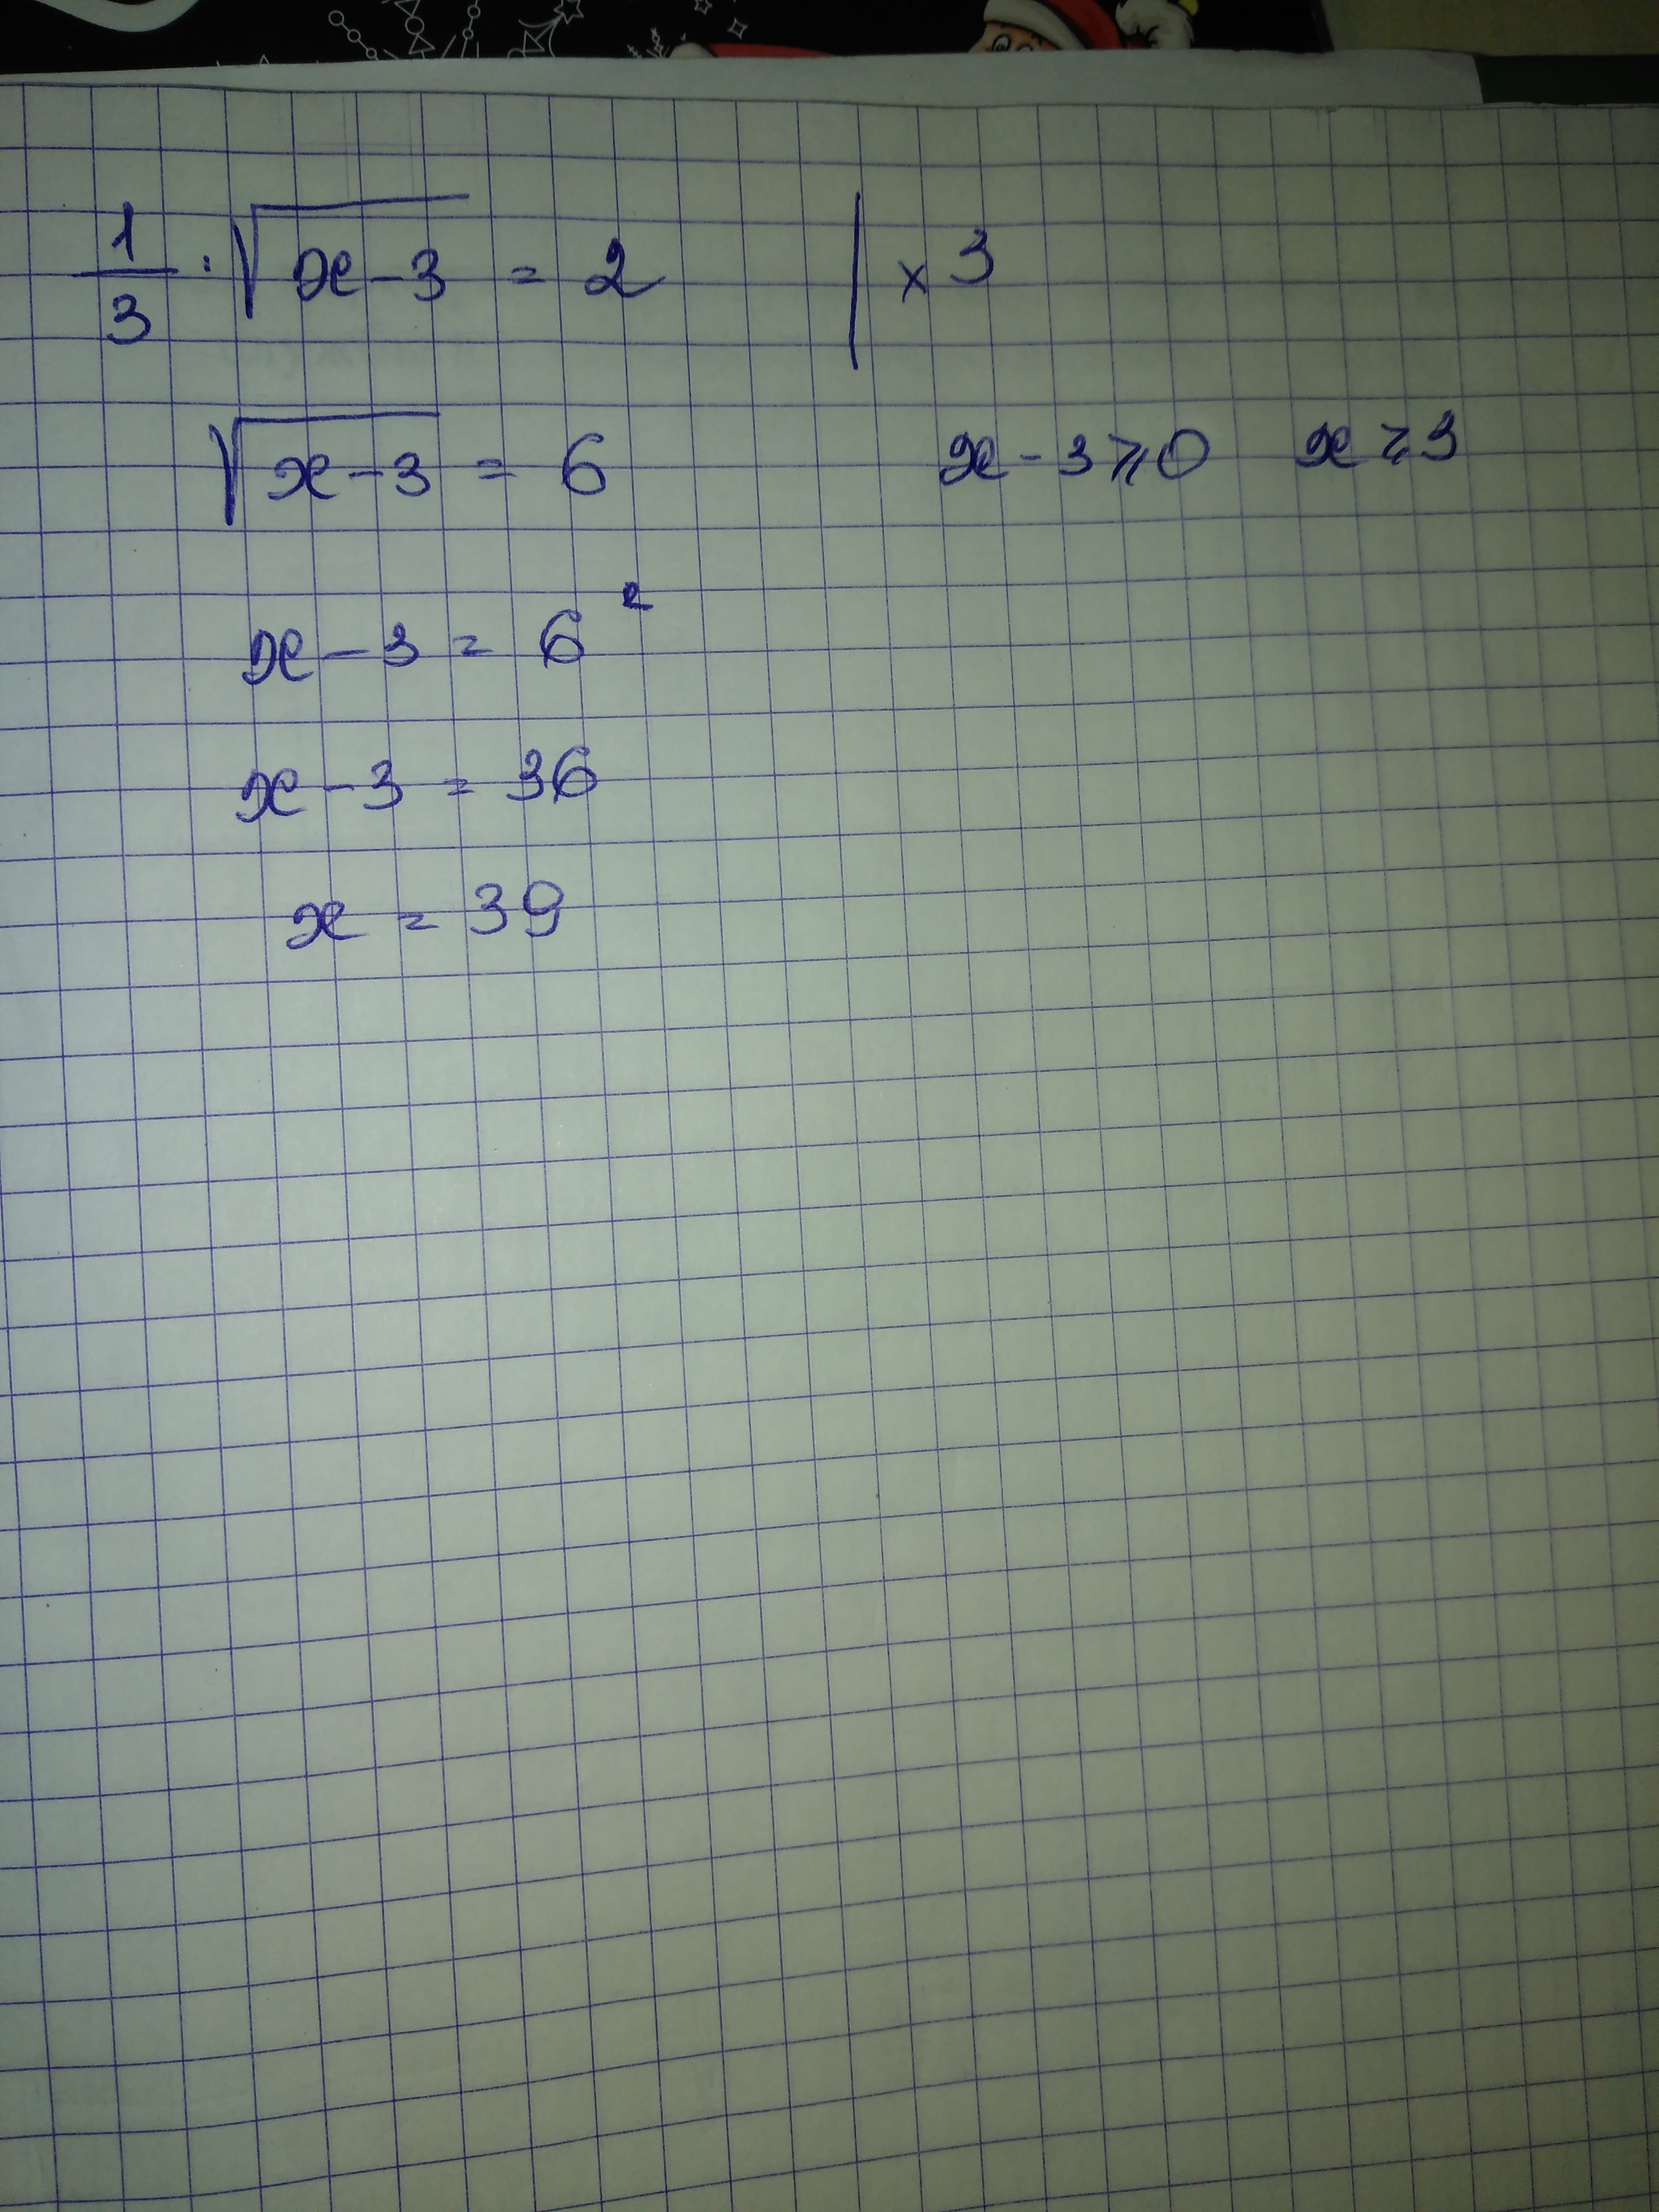 1/3 · √(x-3) = 2 | × 3
√(x-3) = 6 x-3⩾0 x⩾3
x-3 = 6²
x-3 = 36
x = 39